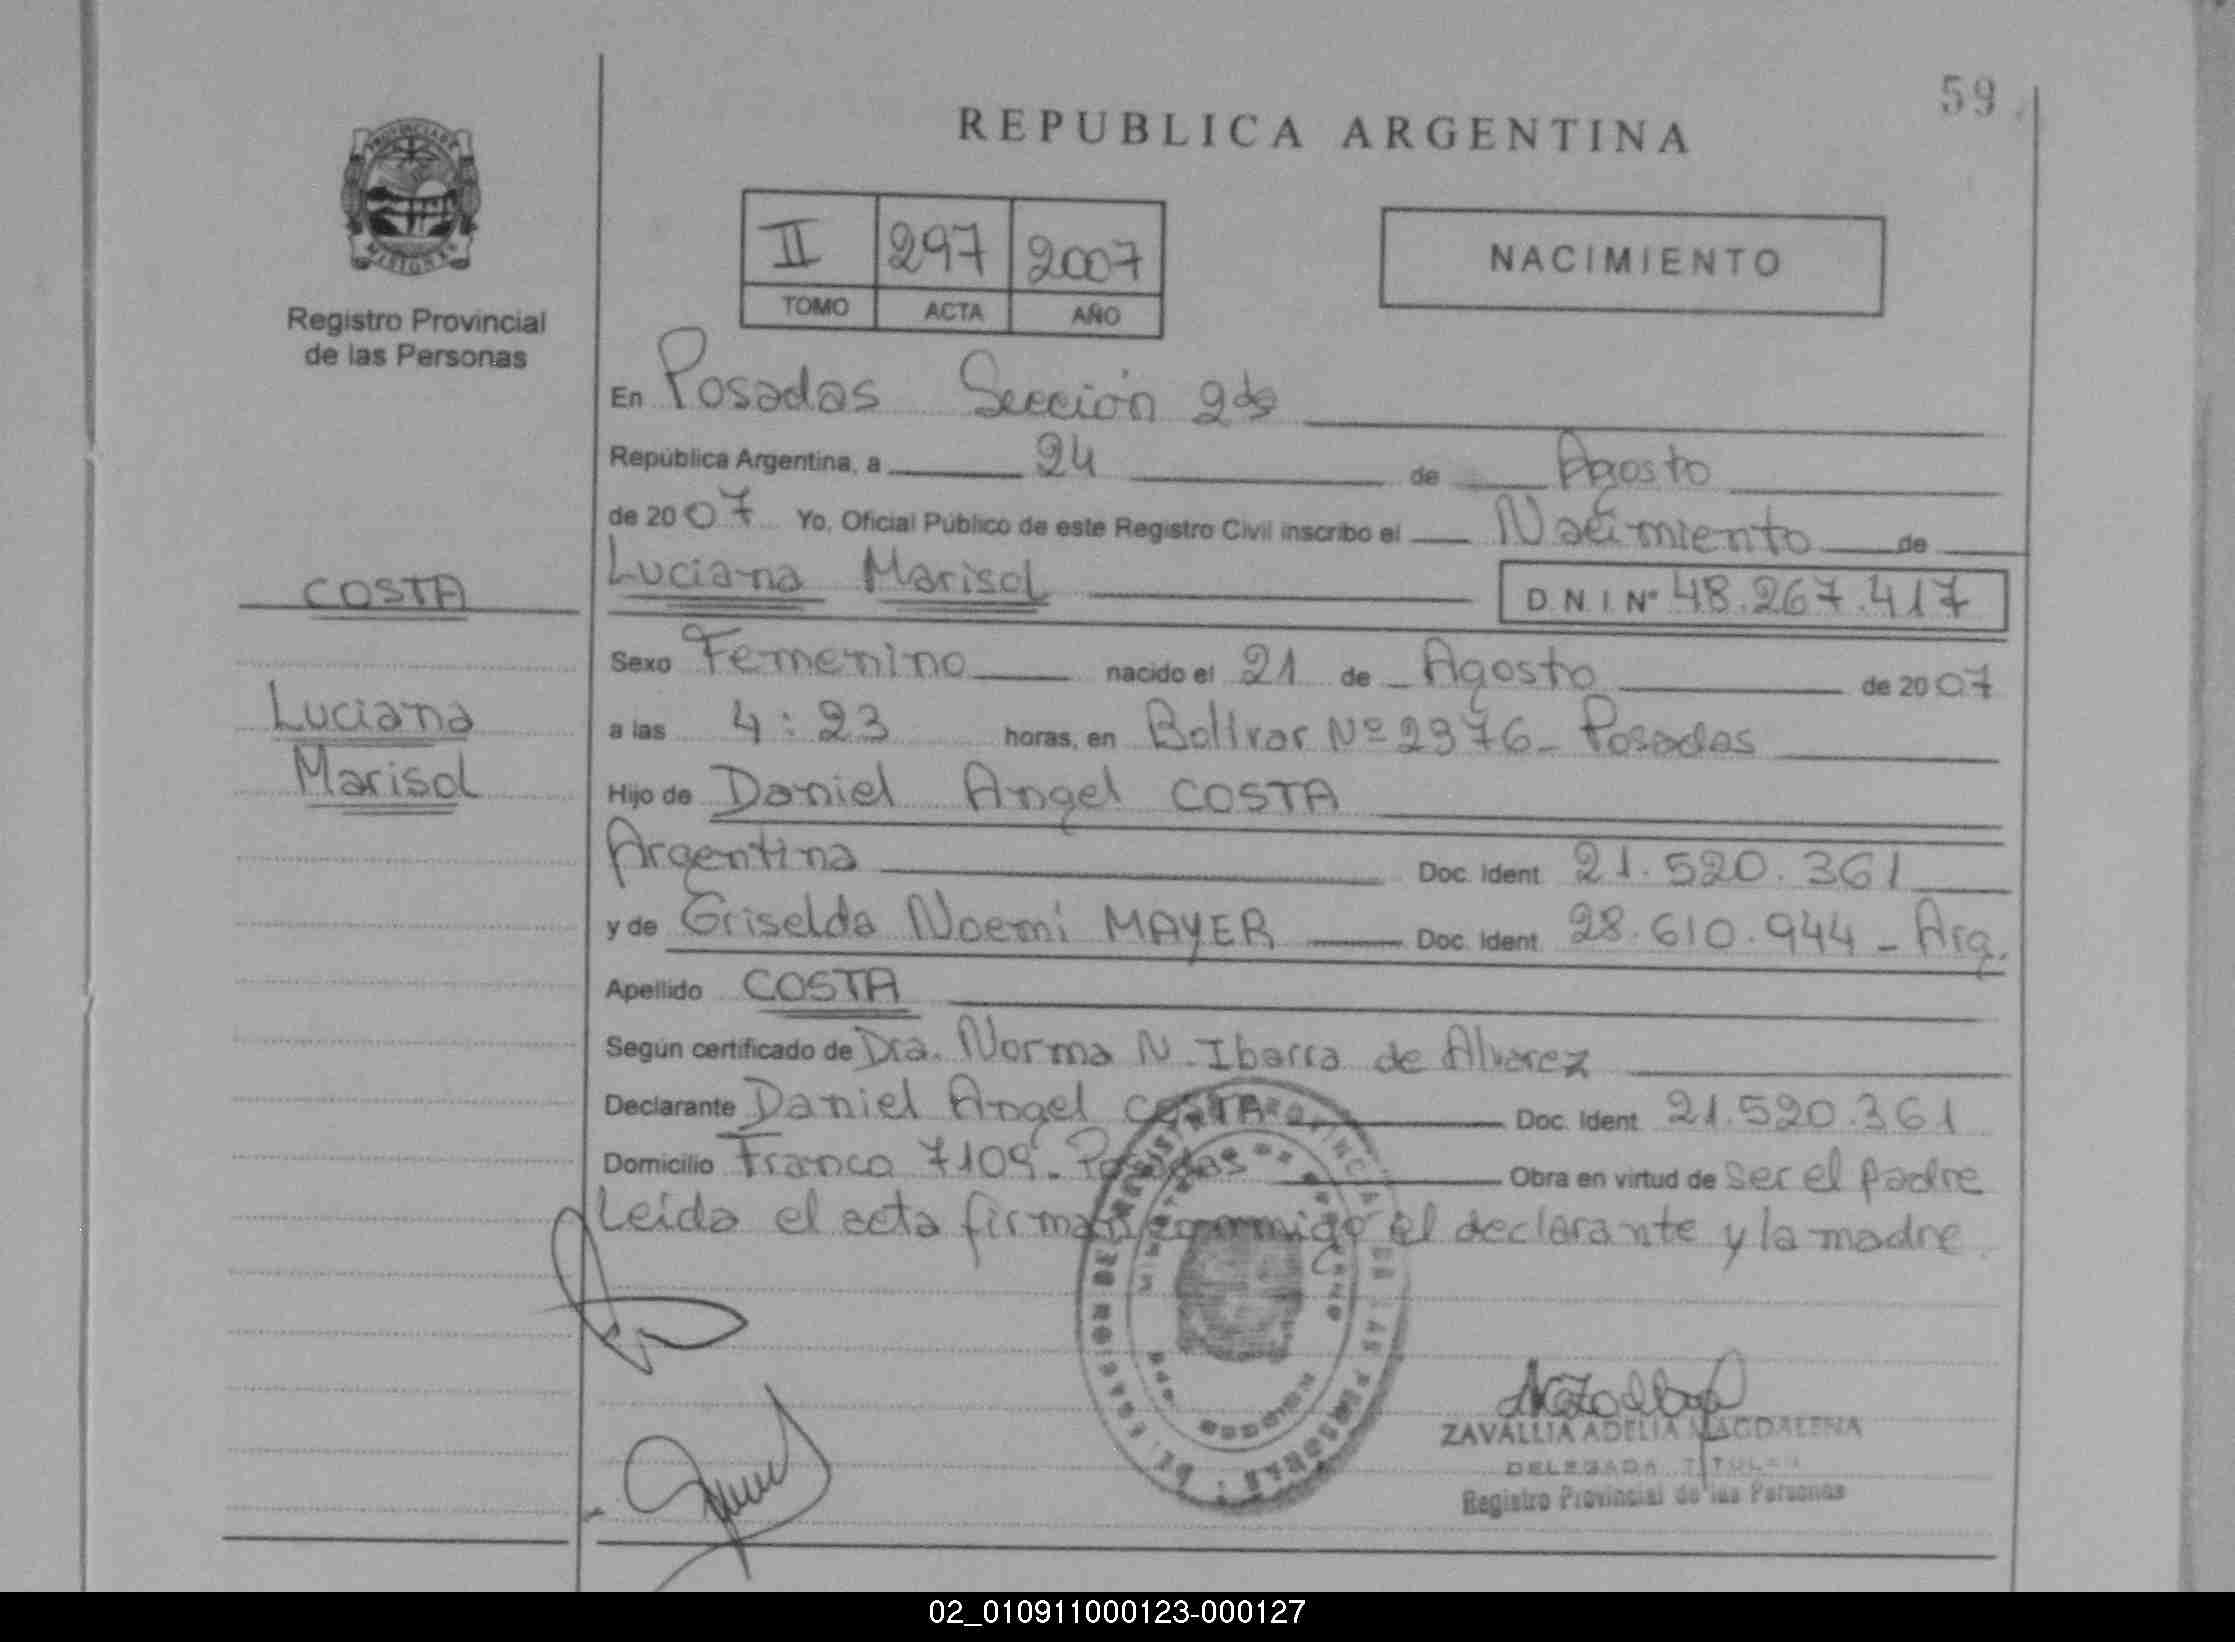 59
REPUBLICA ARGENTINA
PROVINCIA DE
MISIONES
Registro Provincial
de las Personas
II 297 2007
TOMO ACTA AÑO
NACIMIENTO
En Posadas Sección 2da
República Argentina, a 24 de Agosto
de 2007 Yo, Oficial Público de este Registro Civil inscribo el Nacimiento de
COSTA
Luciana Marisol D.N.I. Nº 48.267.417
Sexo Femenino nacido el 21 de Agosto de 2007
Luciana
a las 4:23 horas, en Bolívar Nº 2376 - Posadas
Marisol
Hijo de Daniel Angel COSTA
Argentina Doc. Ident. 21.520.361
y de Griselda Noemí MAYER Doc. Ident. 28.610.944 - Arg.
Apellido COSTA
Según certificado de Dra. Norma N. Ibarra de Alvarez
Declarante Daniel Angel COSTA Doc. Ident. 21.520.361
Domicilio Franco 7109 - Posadas Obra en virtud de ser el padre
Leída el acta firman conmigo el declarante y la madre.
ZAVALLIA ADELIA MAGDALENA
DELEGADA TITULAR
Registro Provincial de las Personas
02_010911000123-000127